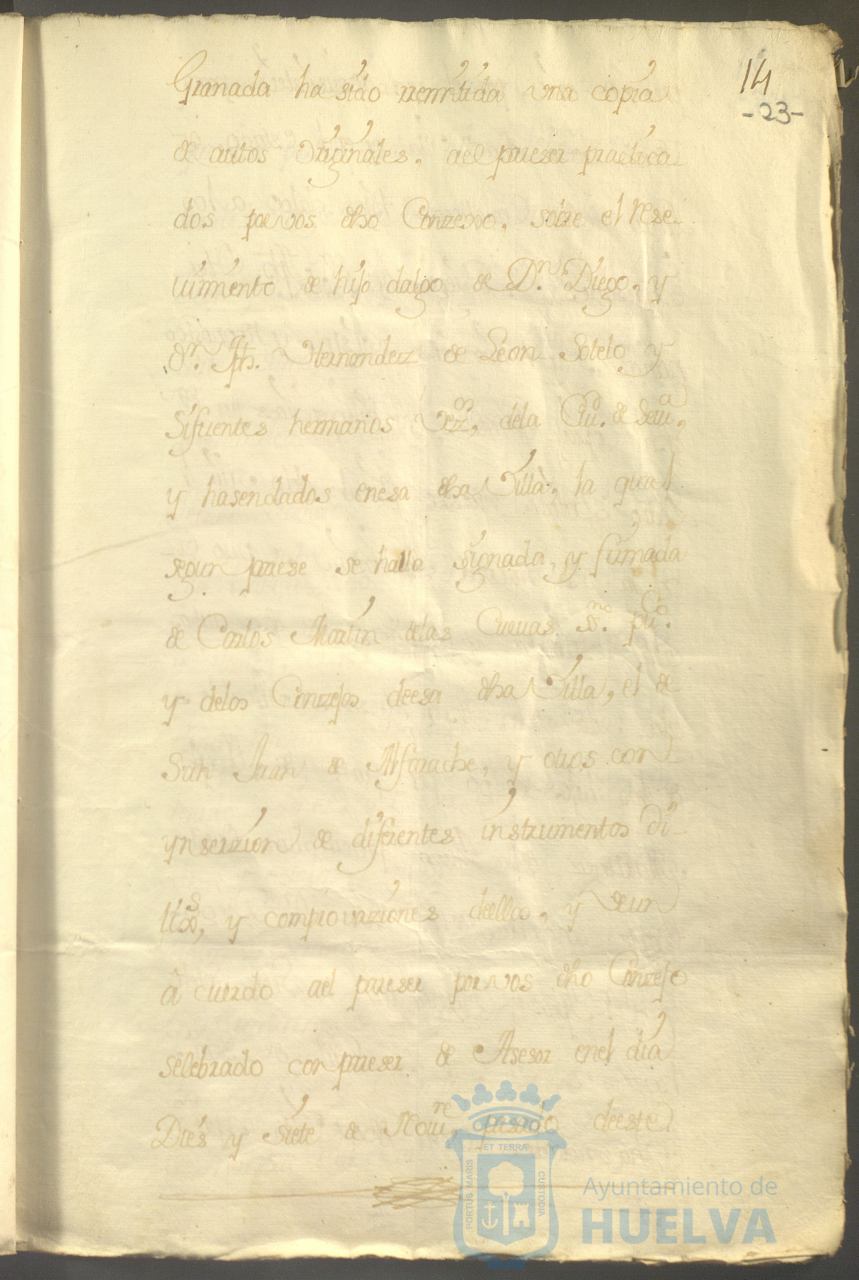 14
-23-
Granada ha sido rremitida una copia
de autos originales, ael pareser practica
dos por vos dho Conzexo, sobre el rrese
uimiento de hijo dalgo de Dn. Diego, y
dn. Jph. Hernandez de Leon Sotelo y
Sifuentes hermanos Vezos, dela Ciud. de Seua,
y hasendados enesa dha Villa, la qual
segun parese se halla signada, y firmada
de Carlos Martin delas Cueuas ssno. puco.
y delos Conzejos deesa dha Villa, el de
San Juan de Alfarache, y otros con
ynserzion de diferentes instrumentos di-
thos, y comprouaziones deello, y deun
â cuerdo ael pareser por vos dho Conzejo
selebrado con pareser de Asesor enel dia
Dies y Siete de Noure, pasado deeste
ET TERRÆ
PORTUS MARIS
CUSTODIA
Ayuntamiento de
HUELVA